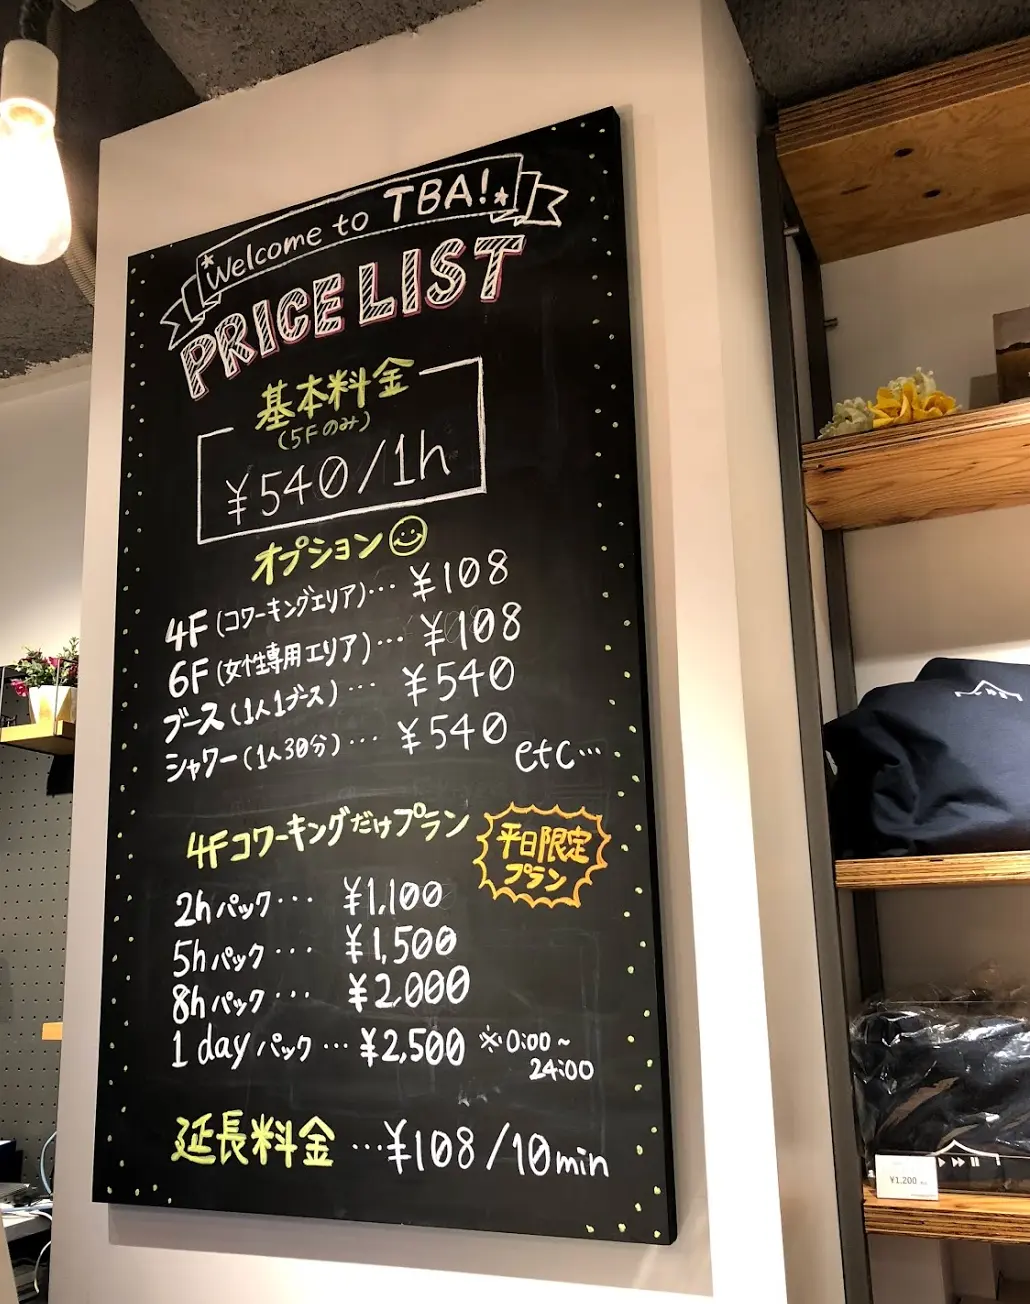 Welcome to TBA!
PRICE LIST
基本料金
(5Fのみ)
¥540/1h
オプション
4F(コワーキングエリア)… ¥108
6F(女性専用エリア)… ¥108
ブース(1人1ブース)… ¥540
シャワー(1人30分)… ¥540
etc…
4Fコワーキングだけプラン
平日限定
プラン
2hパック… ¥1,100
5hパック… ¥1,500
8hパック… ¥2,000
1dayパック… ¥2,500 ※0:00~
24:00
延長料金…¥108/10min
¥1,200